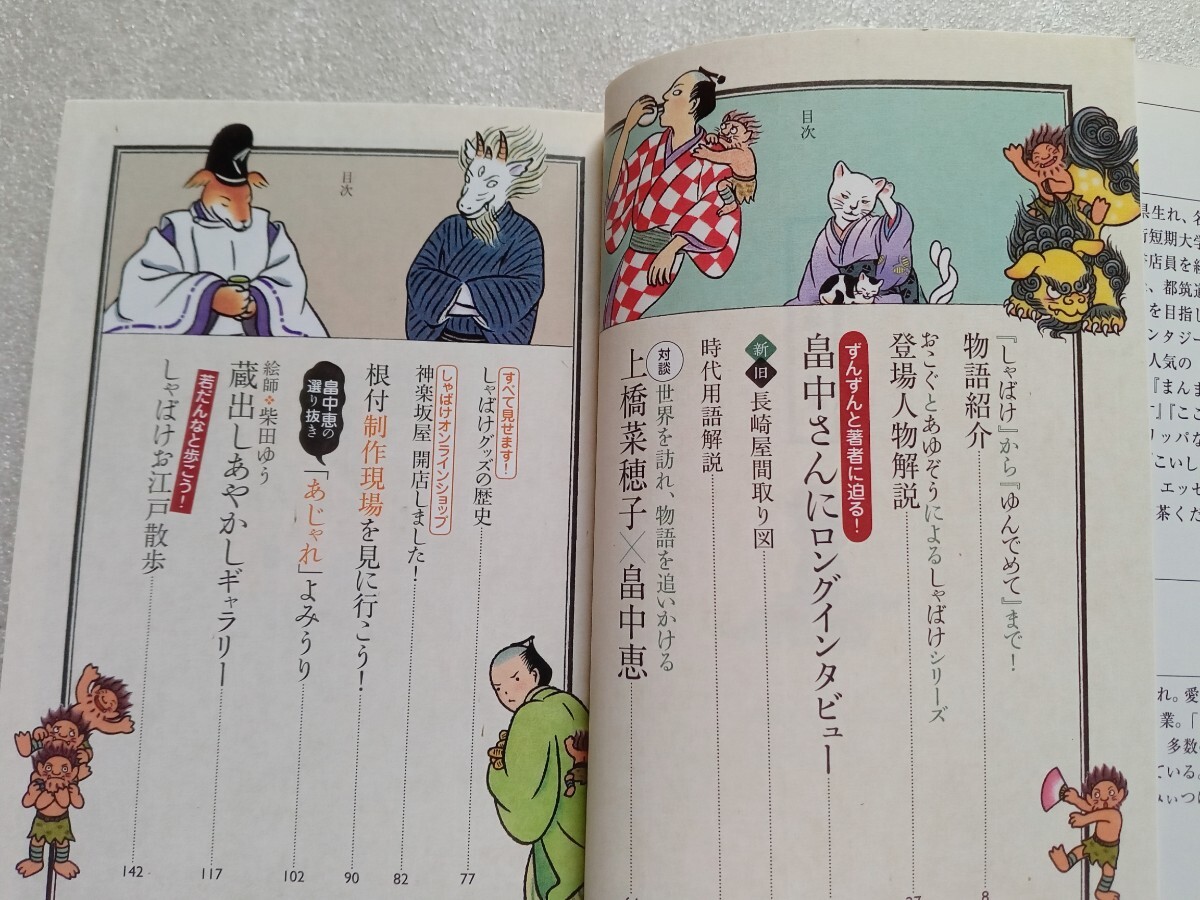 目次
『しゃばけ』から『ゆんでめて』まで!
物語紹介
8
おこぐとあゆぞうによるしゃばけシリーズ
登場人物解説
ずんずんと著者に迫る!
畠中さんにロングインタビュー
新旧
長崎屋間取り図
時代用語解説
対談
世界を訪れ、物語を追いかける
上橋菜穂子×畠中恵
目次
すべて見せます!
しゃばけグッズの歴史
77
しゃばけオンラインショップ
神楽坂屋 開店しました!
82
根付制作現場を見に行こう!
90
畠中恵の
選り抜き
「あじゃれ」よみうり
102
絵師・柴田ゆう
蔵出しあやかしギャラリー
117
若だんなと歩こう!
しゃばけお江戸散歩
142
県生れ、名
短期大学
店員を経
、都筑道
を目指し
ンタジー
人気の
『まんま
』『ここ
リッパな
こいし
エッセ
茶くだ
れ。愛
業。「
多数
ている。